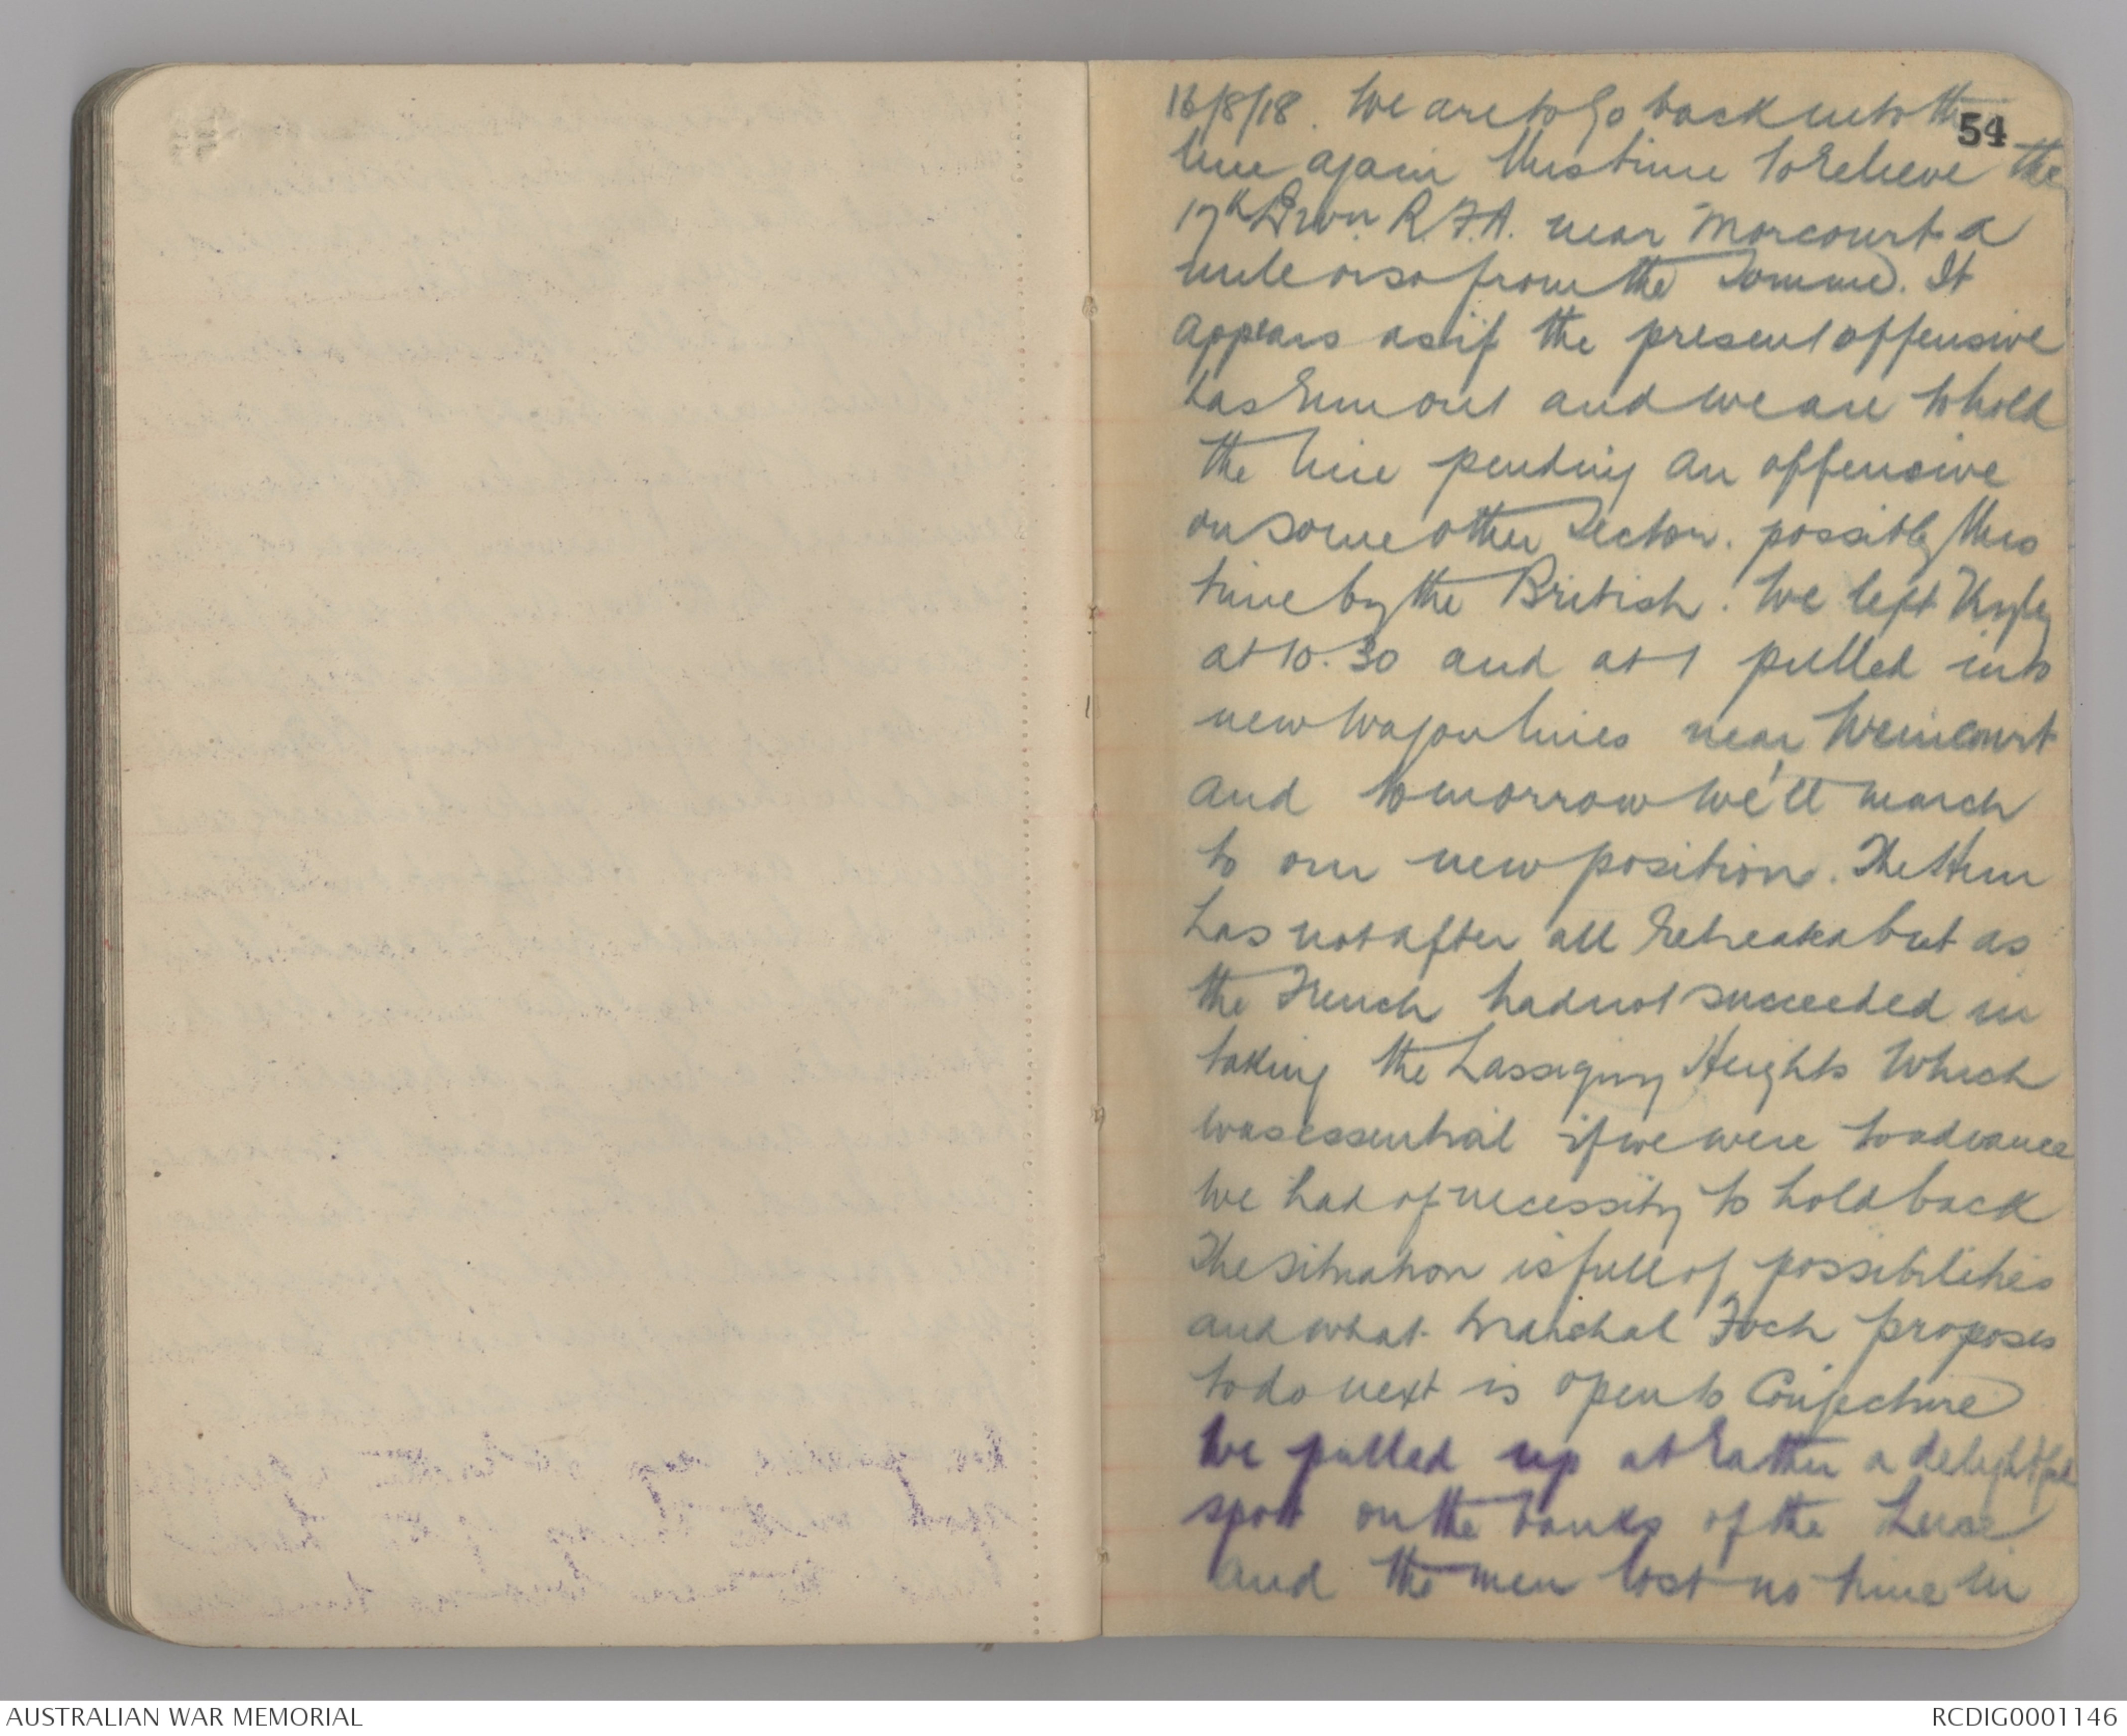 54
16/8/18. We are to go back into the
line again this time to relieve the
17th Divn. R.F.A. near Morcourt a
mile or so from the Somme. It
appears as if the present offensive
has run out and we are to hold
the line pending an offensive
on some other sector. possibly this
time by the British. We left
at 10.30 and at 1 pulled into
new wagon lines near Weincourt
and tomorrow we'll march
to our new position. The Hun
has not after all retreated but as
the French had not succeeded in
taking the Lassigny Heights which
was essential if we were to advance
we had of necessity to hold back
The situation is full of possibilities
and what Marshal Foch proposes
to do next is open to Conjecture
We pulled up at rather a delightful
spot on the banks of the Luce
and the men lost no time in
AUSTRALIAN WAR MEMORIAL
RCDIG0001146